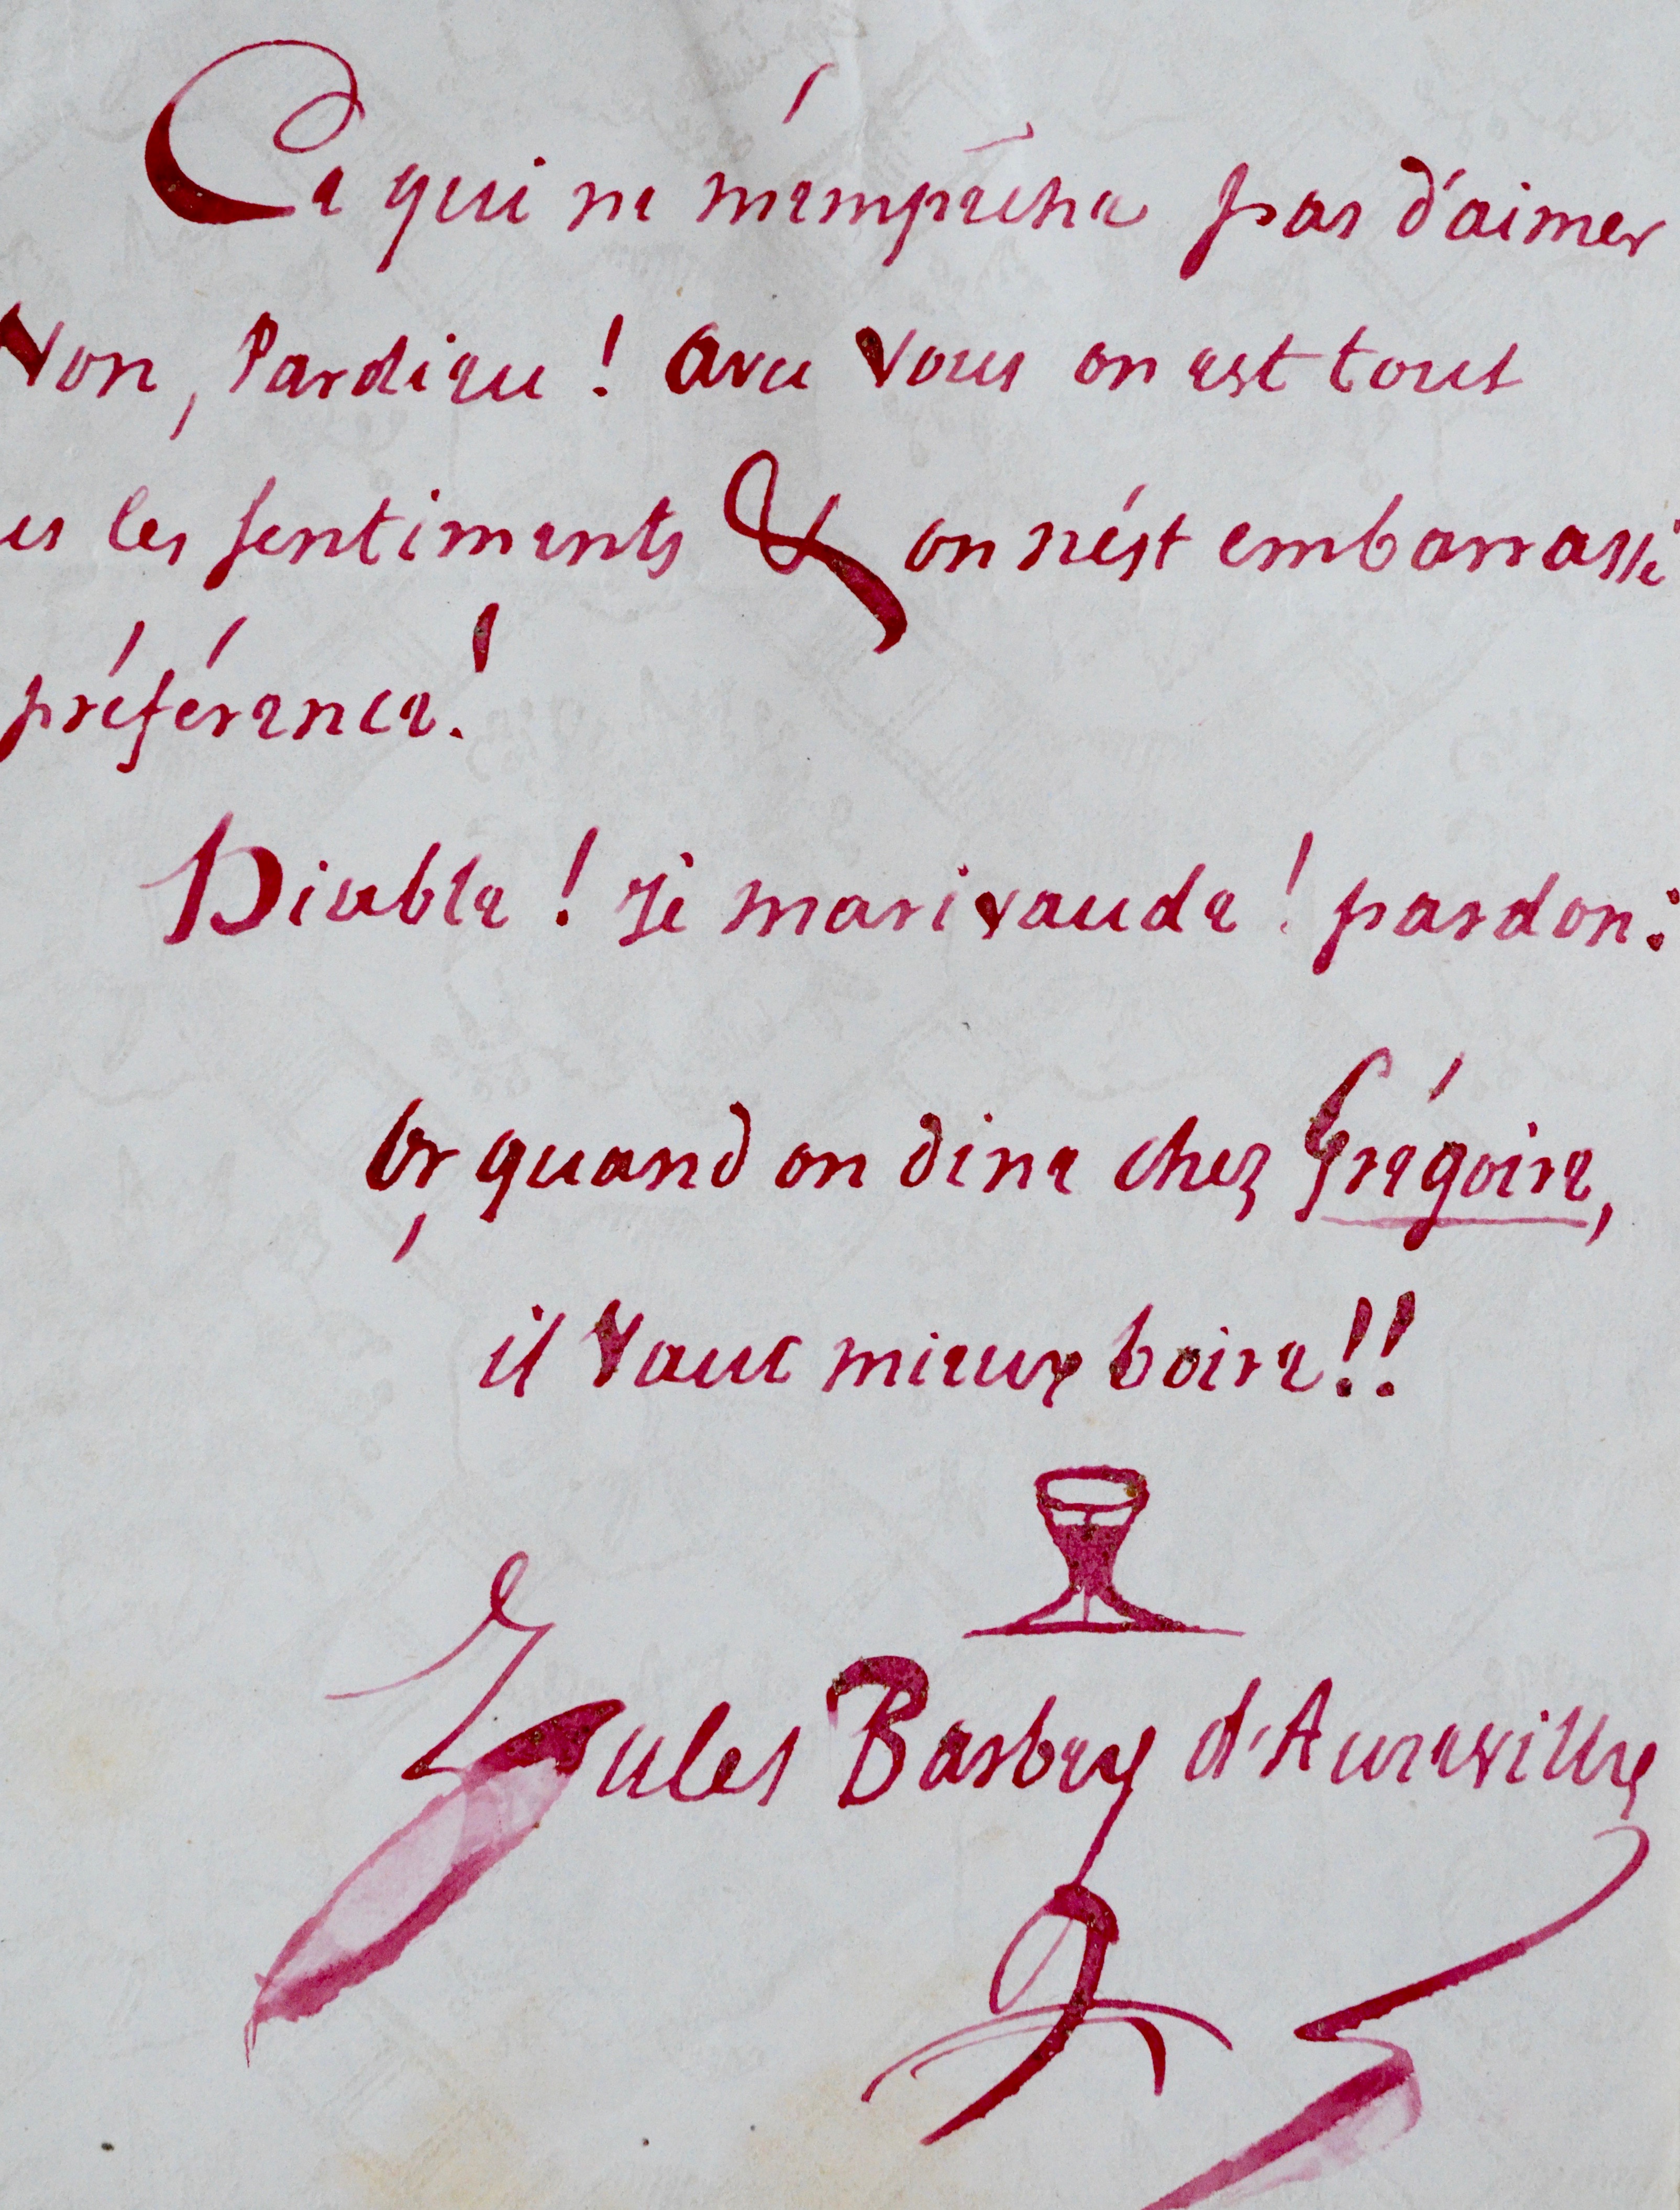 Ce qui ne m'empêche pas d'aimer
Non, Pardieu! avec vous on est tout
les sentiments & on n'est embarrassé
préférence!
Diable! je marivaude! pardon!
Or, quand on dine chez Grégoire,
il vaut mieux boire!!
Jules Barbey d'Aurevilly